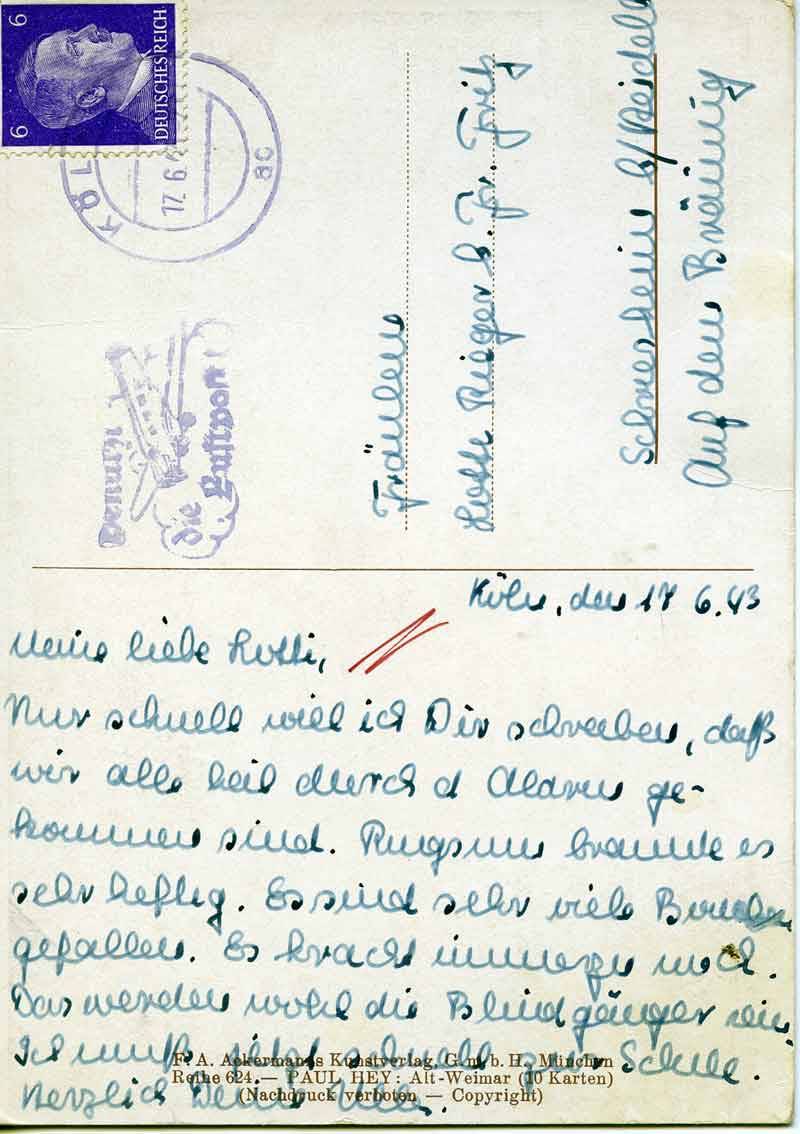 6 6
DEUTSCHES REICH
KÖL
17.6.
Benutzt
die
Luftpost!
Fräulein
Lotte Rieger b. Fr. Fritz
Schriesheim b/Heidelb
Auf dem Bräunig
Köln, den 17 6.43
Meine liebe Lotti,
Nur schnell will ich Dir schreiben, daß
wir alle heil durch d Alarm ge-
kommen sind. Ringsum brannte es
sehr heftig. Es sind sehr viele Bomben
gefallen. Es kracht immerzu noch.
Das werden wohl die Blindgänger sein.
Ich muß jetzt schnell zur Schule.
Herzlich Deine
F. A. Ackermanns Kunstverlag, G. m. b. H., München
Reihe 624 — PAUL HEY: Alt-Weimar (10 Karten)
(Nachdruck verboten — Copyright)